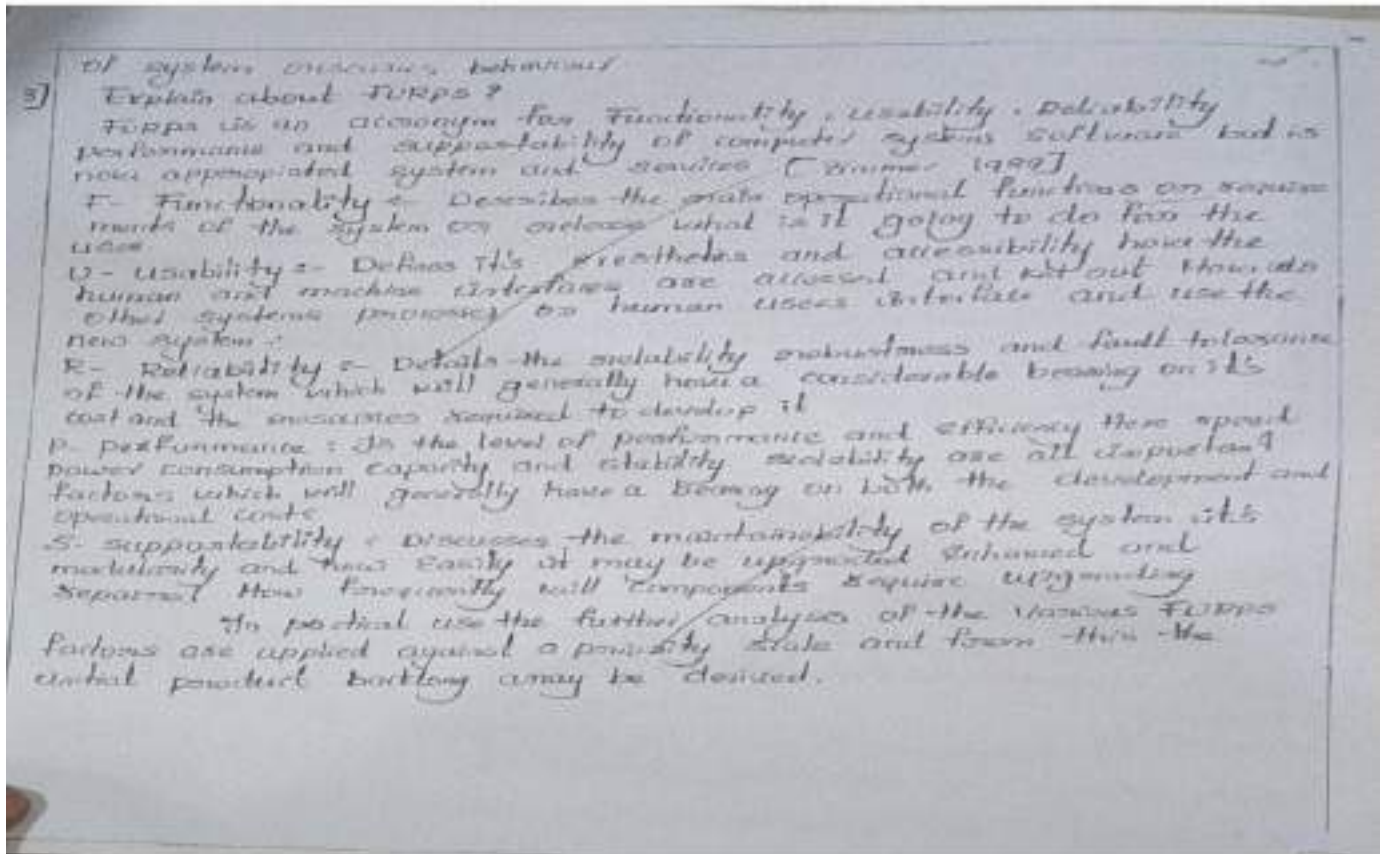 of system behaviour
3] Explain about FURPS ?
FURPS is an acronym for Functionality, Usability, Reliability
performance and supportability of computer systems software but is
now appropriated system and services [ 1999]
F- Functionality :- Describes the main operational functions or require
ments of the system or what is it going to do for the
user
U- Usability :- Defines it's and accessibility how the
human and machine interfaces are accessed and How do
other systems processes or human users interface and use the
new system.
R- Reliability :- Details the reliability robustness and fault tolerance
of the system which will generally have a considerable bearing on it's
cost and the required to develop it
P- perfunmance : Is the level of performance and efficiency Here speed
power consumption capacity and stability are all important
factors which will generally have a bearing on both the development and
operational costs
S- supportability : Discusses the maintainability of the system it's
modularity and how Easily it may be upgraded Enhanced and
How frequently will components require upgrading
In the further analyses of the various FURPS
factors are applied against a scale and from this the
product may be derived.